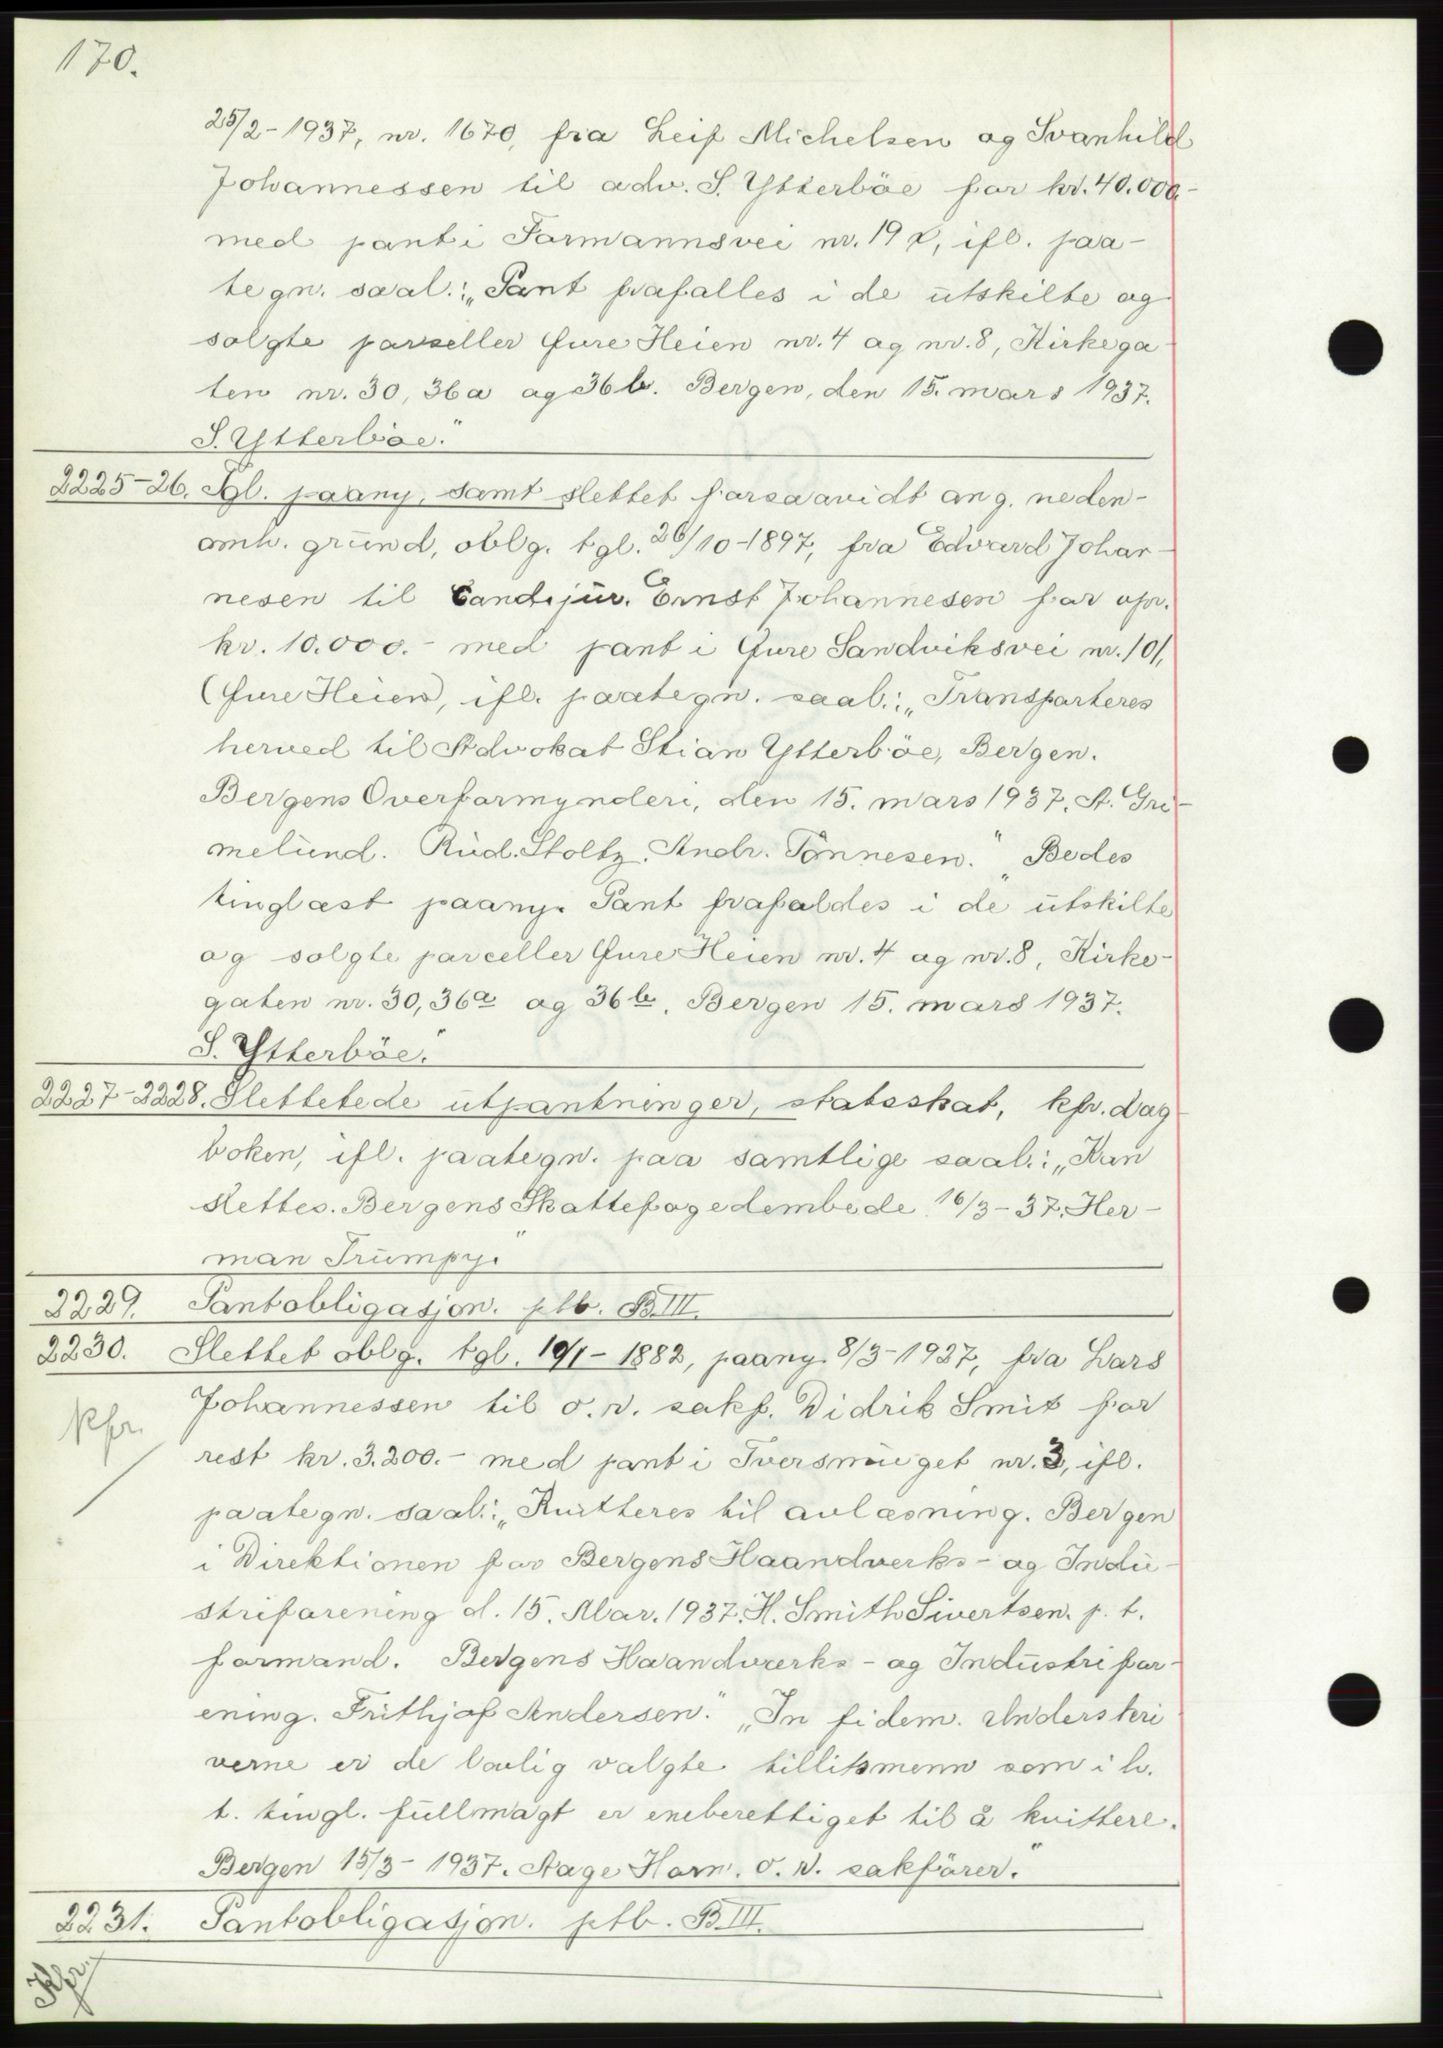 170.
25/2-1937, nr. 1670, fra Leif Michelsen og Svanhild
Johannessen til adv. S. Ytterböe for kr. 40.000.-
med pant i Formannsvei nr. 19, ifl. paa-
tegn. saal.: „Pant frafalles i de utskilte og
solgte parseller Øvre Heien nr. 4 og nr. 8, Kirkega
ten nr. 30, 36a og 36b. Bergen, den 15. mars 1937.
S. Ytterböe."
2225-26. Tgl. paany, samt slettet forsaavidt ang. neden-
omh. grund, oblg. tgl. 26/10-1897, fra Edvard Johan-
nesen til Cand. jur. Ernst Johannesen for opr.
kr. 10.000.- med pant i Øvre Sandviksvei nr. 101,
(Øvre Heien), ifl. paategn. saal.: „Transporteres
herved til Advokat Stian Ytterböe, Bergen.
Bergens Overformynderi, den 15. mars 1937. A. Gri-
melund. Rud. Stoltz. Andr. Tönnesen." „Bedes
tinglæst paany. Pant frafaldes i de utskilte
og solgte parceller Øvre Heien nr. 4 og nr. 8, Kirke-
gaten nr. 30, 36a og 36b. Bergen 15. mars 1937.
S. Ytterböe."
2227-2228. Slettetede utpantninger, statsskat, kfr. dag
boken, ifl. paategn. paa samtlige saal.: „Kan
slettes. Bergens Skattefogedembede 16/3-37. Her-
man Trumpy."
2229. Pantobligasjon. ptb. B.III.
2230. Slettet oblg. tgl. 19/1-1882, paany 8/3-1927, fra Lars
Johannessen til o.r. sakf. Didrik Smit for
Kfr.
rest kr. 3.200.- med pant i Tversmuget nr. 3, ifl.
paategn. saal.: „Kvitteres til avlæsning. Bergen
i Direktionen for Bergens Haandverks- og Indu-
striforening d. 15. Mar. 1937. H. Smith Sivertsen. p. t.
formand. Bergens Haandverks- og Industrifor-
ening. Frithjof Andersen." „In fidem. Underskri
verne er de lovlig valgte tillitsmenn som i h.
t. tingl. fullmagt er eneberettiget til å kvittere.
Bergen 15/3-1937. Aage Horn. o.r. sakförer."
2231. Pantobligasjon. ptb. B.III.
Kfr.